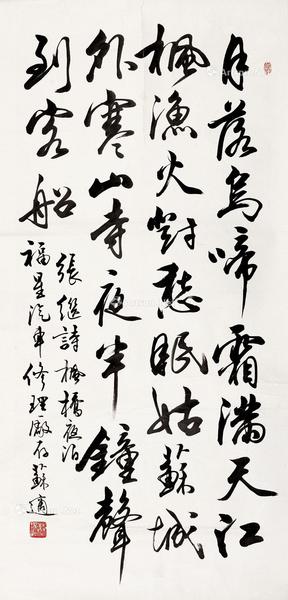 月落烏啼霜滿天江
楓漁火對愁眠姑蘇城
外寒山寺夜半鐘聲
到客船
張繼詩楓橋夜泊
福星汽車修理廠存蘇適